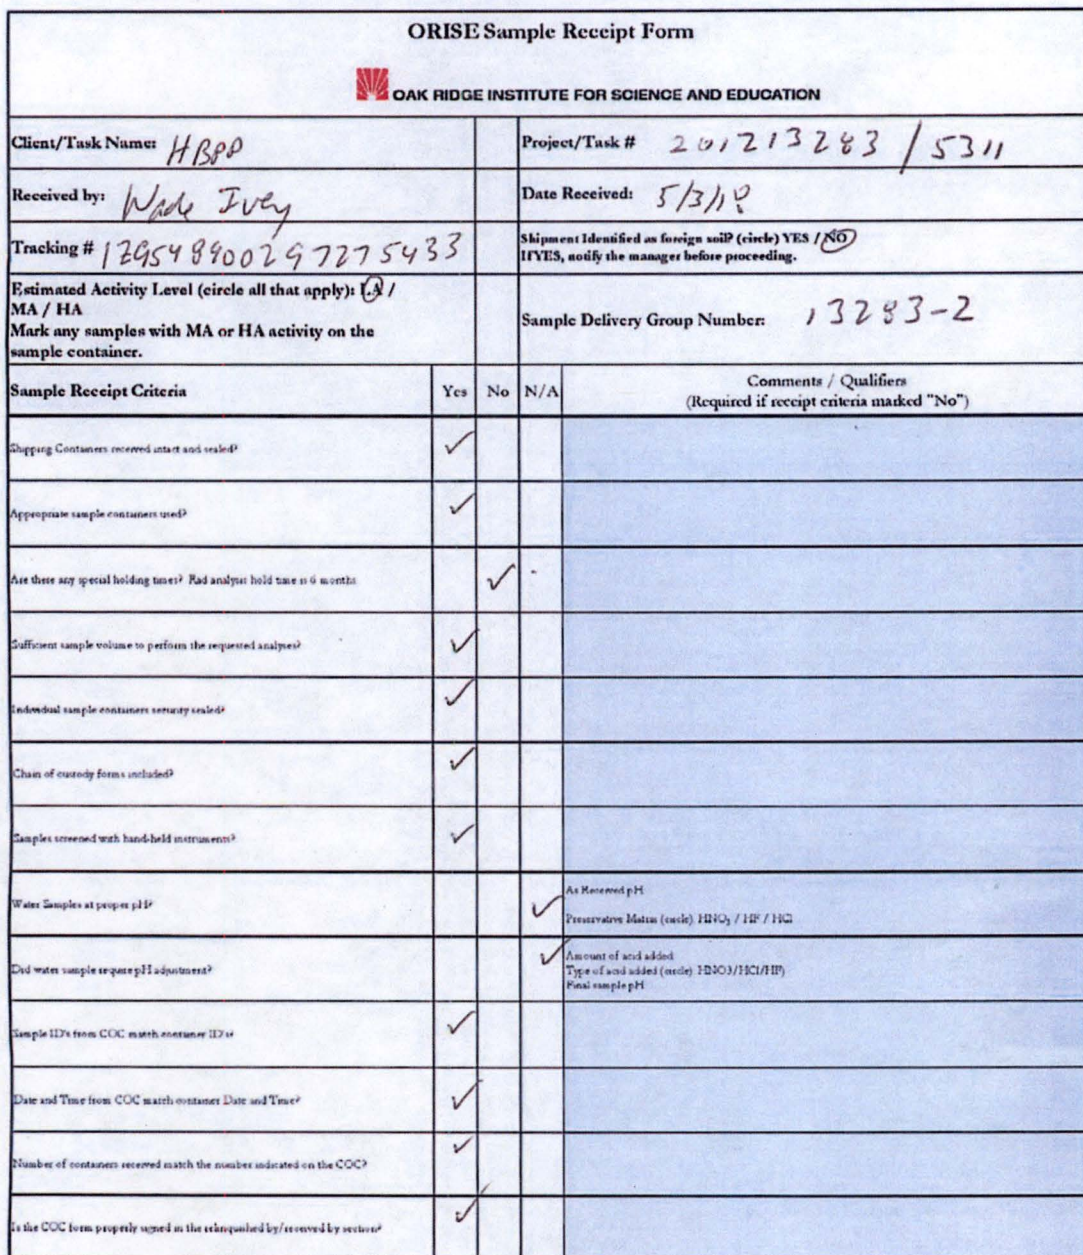 ORISE Sample Receipt Form
OAK RIDGE INSTITUTE FOR SCIENCE AND EDUCATION
Client/Task Name: HBPP
Project/Task # 201213283 / 5311
Received by: Wade Ivey
Date Received: 5/3/18
Tracking # 1Z9548900297275433
Shipment Identified as foreign soil? (circle) YES / NO
If YES, notify the manager before proceeding.
Estimated Activity Level (circle all that apply): LA /
MA / HA
Mark any samples with MA or HA activity on the
sample container.
Sample Delivery Group Number: 13283-2
Sample Receipt Criteria
Yes
No
N/A
Comments / Qualifiers
(Required if receipt criteria marked "No")
Shipping Containers received intact and sealed?
Appropriate sample containers used?
Are there any special holding times? Rad analysis hold time is 6 months
Sufficient sample volume to perform the requested analyses?
Individual sample containers security sealed?
Chain of custody forms included?
Samples screened with hand-held instruments?
Water Samples at proper pH?
As Received pH
Preservative Matrix (circle) HNO₃ / HF / HCl
Did water sample require pH adjustment?
Amount of acid added
Type of acid added (circle) HNO3/HCl/HF)
Final sample pH
Sample ID's from COC match container ID's?
Date and Time from COC match container Date and Time?
Number of containers received match the number indicated on the COC?
Is the COC form properly signed in the relinquished by/received by section?